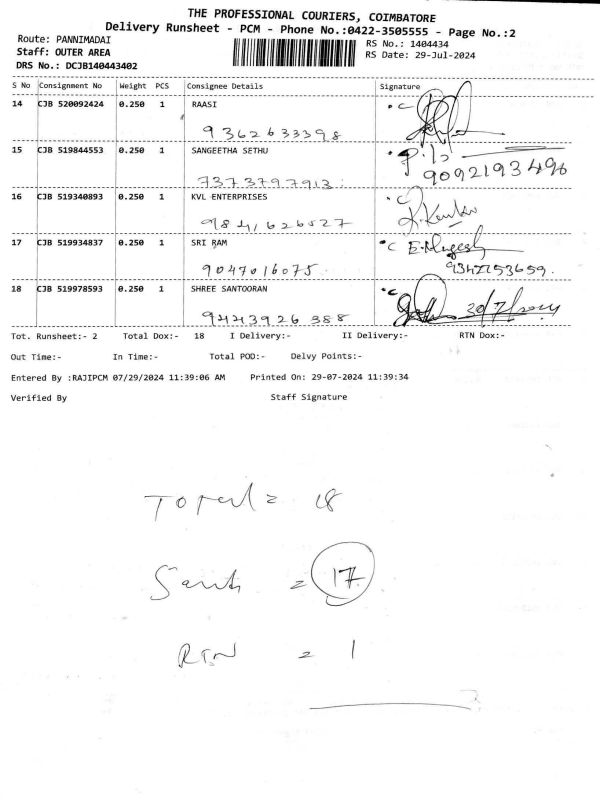 THE PROFESSIONAL COURIERS, COIMBATORE
Delivery Runsheet - PCM - Phone No.:0422-3505555 - Page No.:2
Route: PANNIMADAI
RS No.: 1404434
Staff: OUTER AREA
RS Date: 29-Jul-2024
DRS No.: DCJB140443402
S No Consignment No Weight PCS Consignee Details Signature
14 CJB 520092424 0.250 1 RAASI
9362633398
15 CJB 519844553 0.250 1 SANGEETHA SETHU
7373797913 9092193496
16 CJB 519340893 0.250 1 KVL ENTERPRISES
9841626527
17 CJB 519934837 0.250 1 SRI RAM
9047016075
18 CJB 519978593 0.250 1 SHREE SANTOORAN
9443926388
Tot. Runsheet:- 2 Total Dox:- 18 I Delivery:- II Delivery:- RTN Dox:-
Out Time:- In Time:- Total POD:- Delvy Points:-
Entered By :RAJIPCM 07/29/2024 11:39:06 AM Printed On: 29-07-2024 11:39:34
Verified By Staff Signature
Total = 18
= 17
RTN = 1